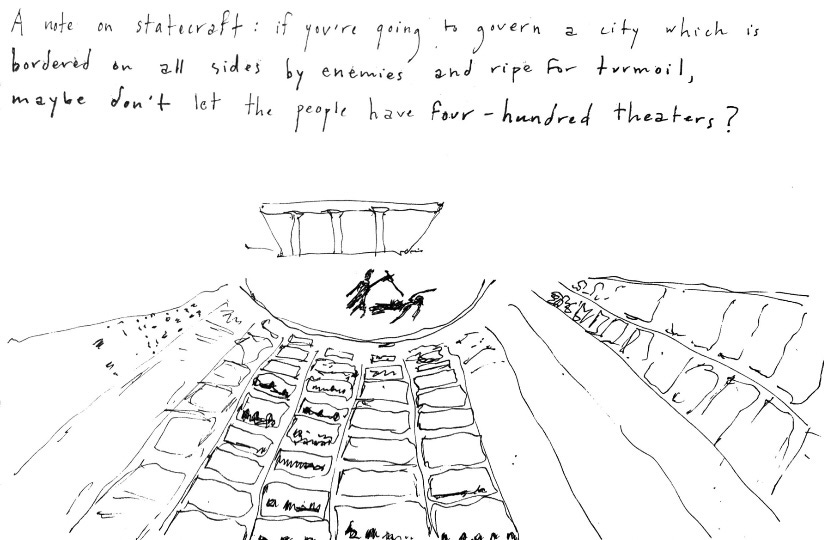 A note on statecraft: if you're going to govern a city which is
bordered on all sides by enemies and ripe for turmoil,
maybe don't let the people have four-hundred theaters?